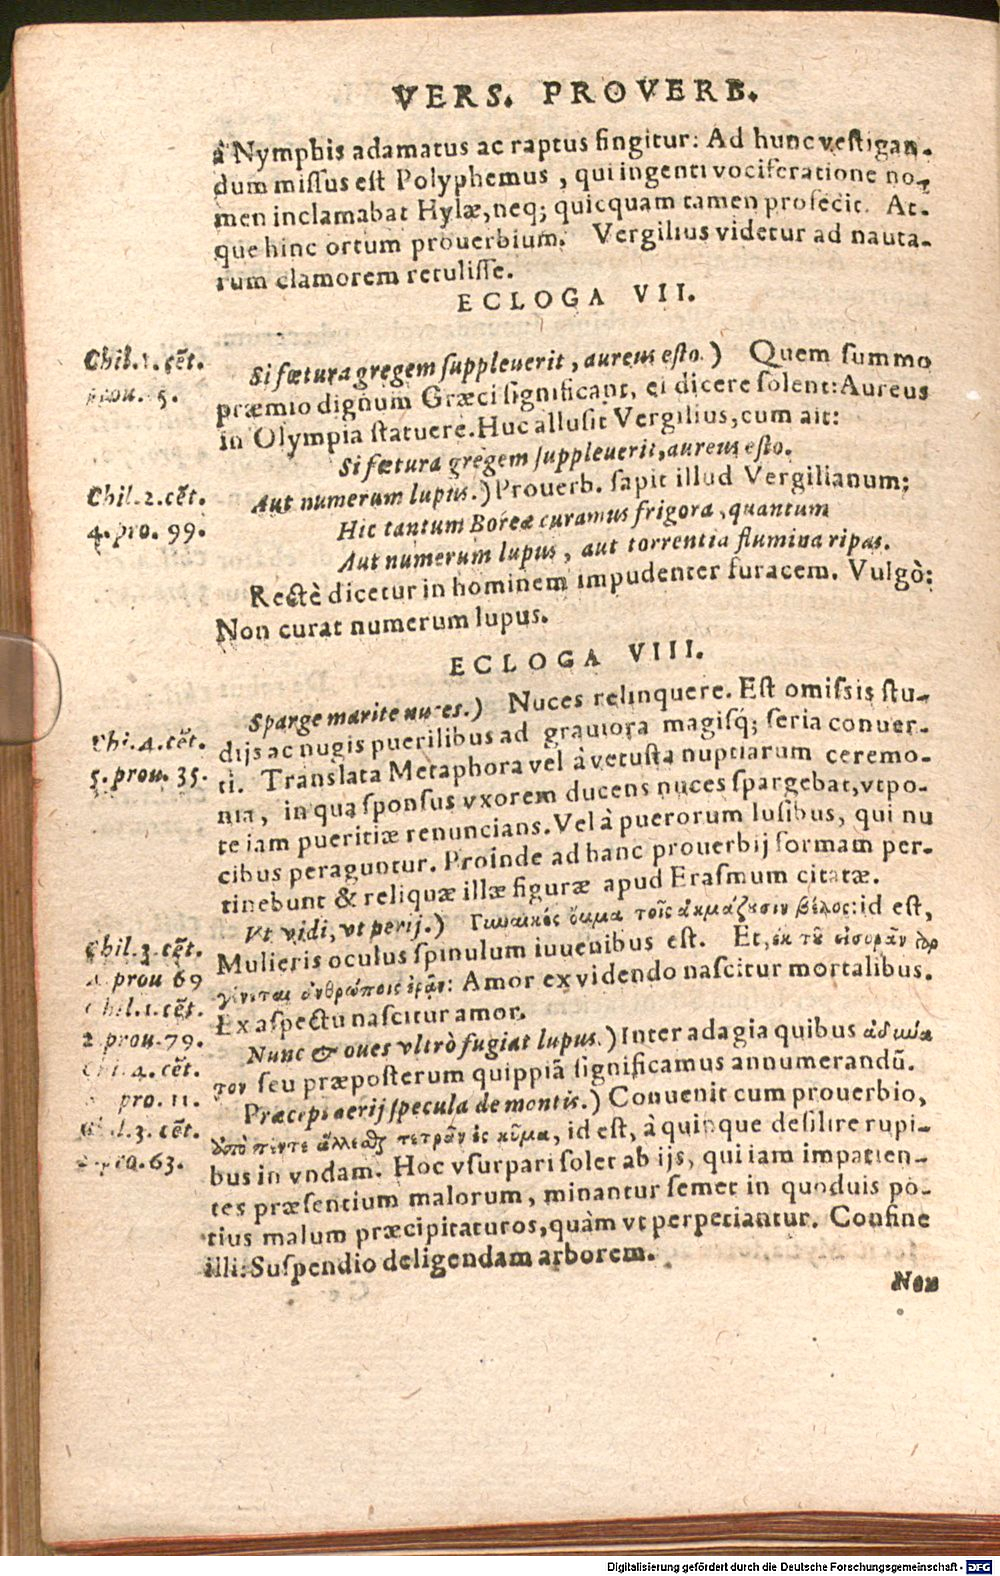 VERS. PROVERB.
à Nymphis adamatus ac raptus fingitur: Ad hunc vestigan-
dum missus est Polyphemus, qui ingenti vociferatione no-
men inclamabat Hylæ, neq; quicquam tamen profecit. At-
que hinc ortum prouerbium. Vergilius videtur ad nauta-
rum clamorem retulisse.
ECLOGA VII.
Chil. 1. cẽt.
prou. 5.
Si fœtura gregem suppleuerit, aureus esto.) Quem summo
præmio dignum Græci significant, ei dicere solent: Aureus
in Olympia statuere. Huc allusit Vergilius, cum ait:
Si fœtura gregem suppleuerit, aureus esto.
Chil. 2. cẽt.
4. pro. 99.
Aut numerum lupus.) Prouerb. sapit illud Vergilianum;
Hic tantum Boreæ curamus frigora, quantum
Aut numerum lupus, aut torrentia flumina ripas.
Rectè dicetur in hominem impudenter furacem. Vulgò:
Non curat numerum lupus.
ECLOGA VIII.
Chi. 4. cẽt.
5. prou. 35.
Sparge marite nuces.) Nuces relinquere. Est omissis stu-
dijs ac nugis puerilibus ad grauiora magisq́; seria conuer-
ti. Translata Metaphora vel à vetusta nuptiarum ceremo-
nia, in qua sponsus vxorem ducens nuces spargebat, vt po-
te iam pueritiæ renuncians. Vel à puerorum lusibus, qui nu
cibus peraguntur. Proinde ad hanc prouerbij formam per-
tinebunt & reliquæ illæ figuræ apud Erasmum citatæ.
Chil. 3. cẽt.
prou 69
Chil. 1. cẽt.
2. prou. 79.
Vt vidi, vt perij.) Γυναικὸς ὄμμα τοῖς ἀκμάζουσιν βέλος: id est,
Mulieris oculus spinulum iuuenibus est. Et, ἐκ τοῦ εἰσορᾶν
γίνεται ἀνθρώποις ἐρᾶν: Amor ex videndo nascitur mortalibus.
Ex aspectu nascitur amor.
Chi. 4. cẽt.
pro. 11.
Nunc & oues vltrò fugiat lupus.) Inter adagia quibus ἀδύνα
τον seu præposterum quippiã significamus annumerandũ.
Chil. 3. cẽt.
pro. 63.
Præceps aerij specula de montis.) Conuenit cum prouerbio,
πέτραν ἐς κῦμα, id est, à quinque desilire rupi-
bus in vndam. Hoc vsurpari solet ab ijs, qui iam impatien-
tes præsentium malorum, minantur semet in quoduis po-
tius malum præcipitaturos, quàm vt perpetiantur. Confine
illi: Suspendio deligendam arborem.
Non
Digitalisierung gefördert durch die Deutsche Forschungsgemeinschaft - DFG